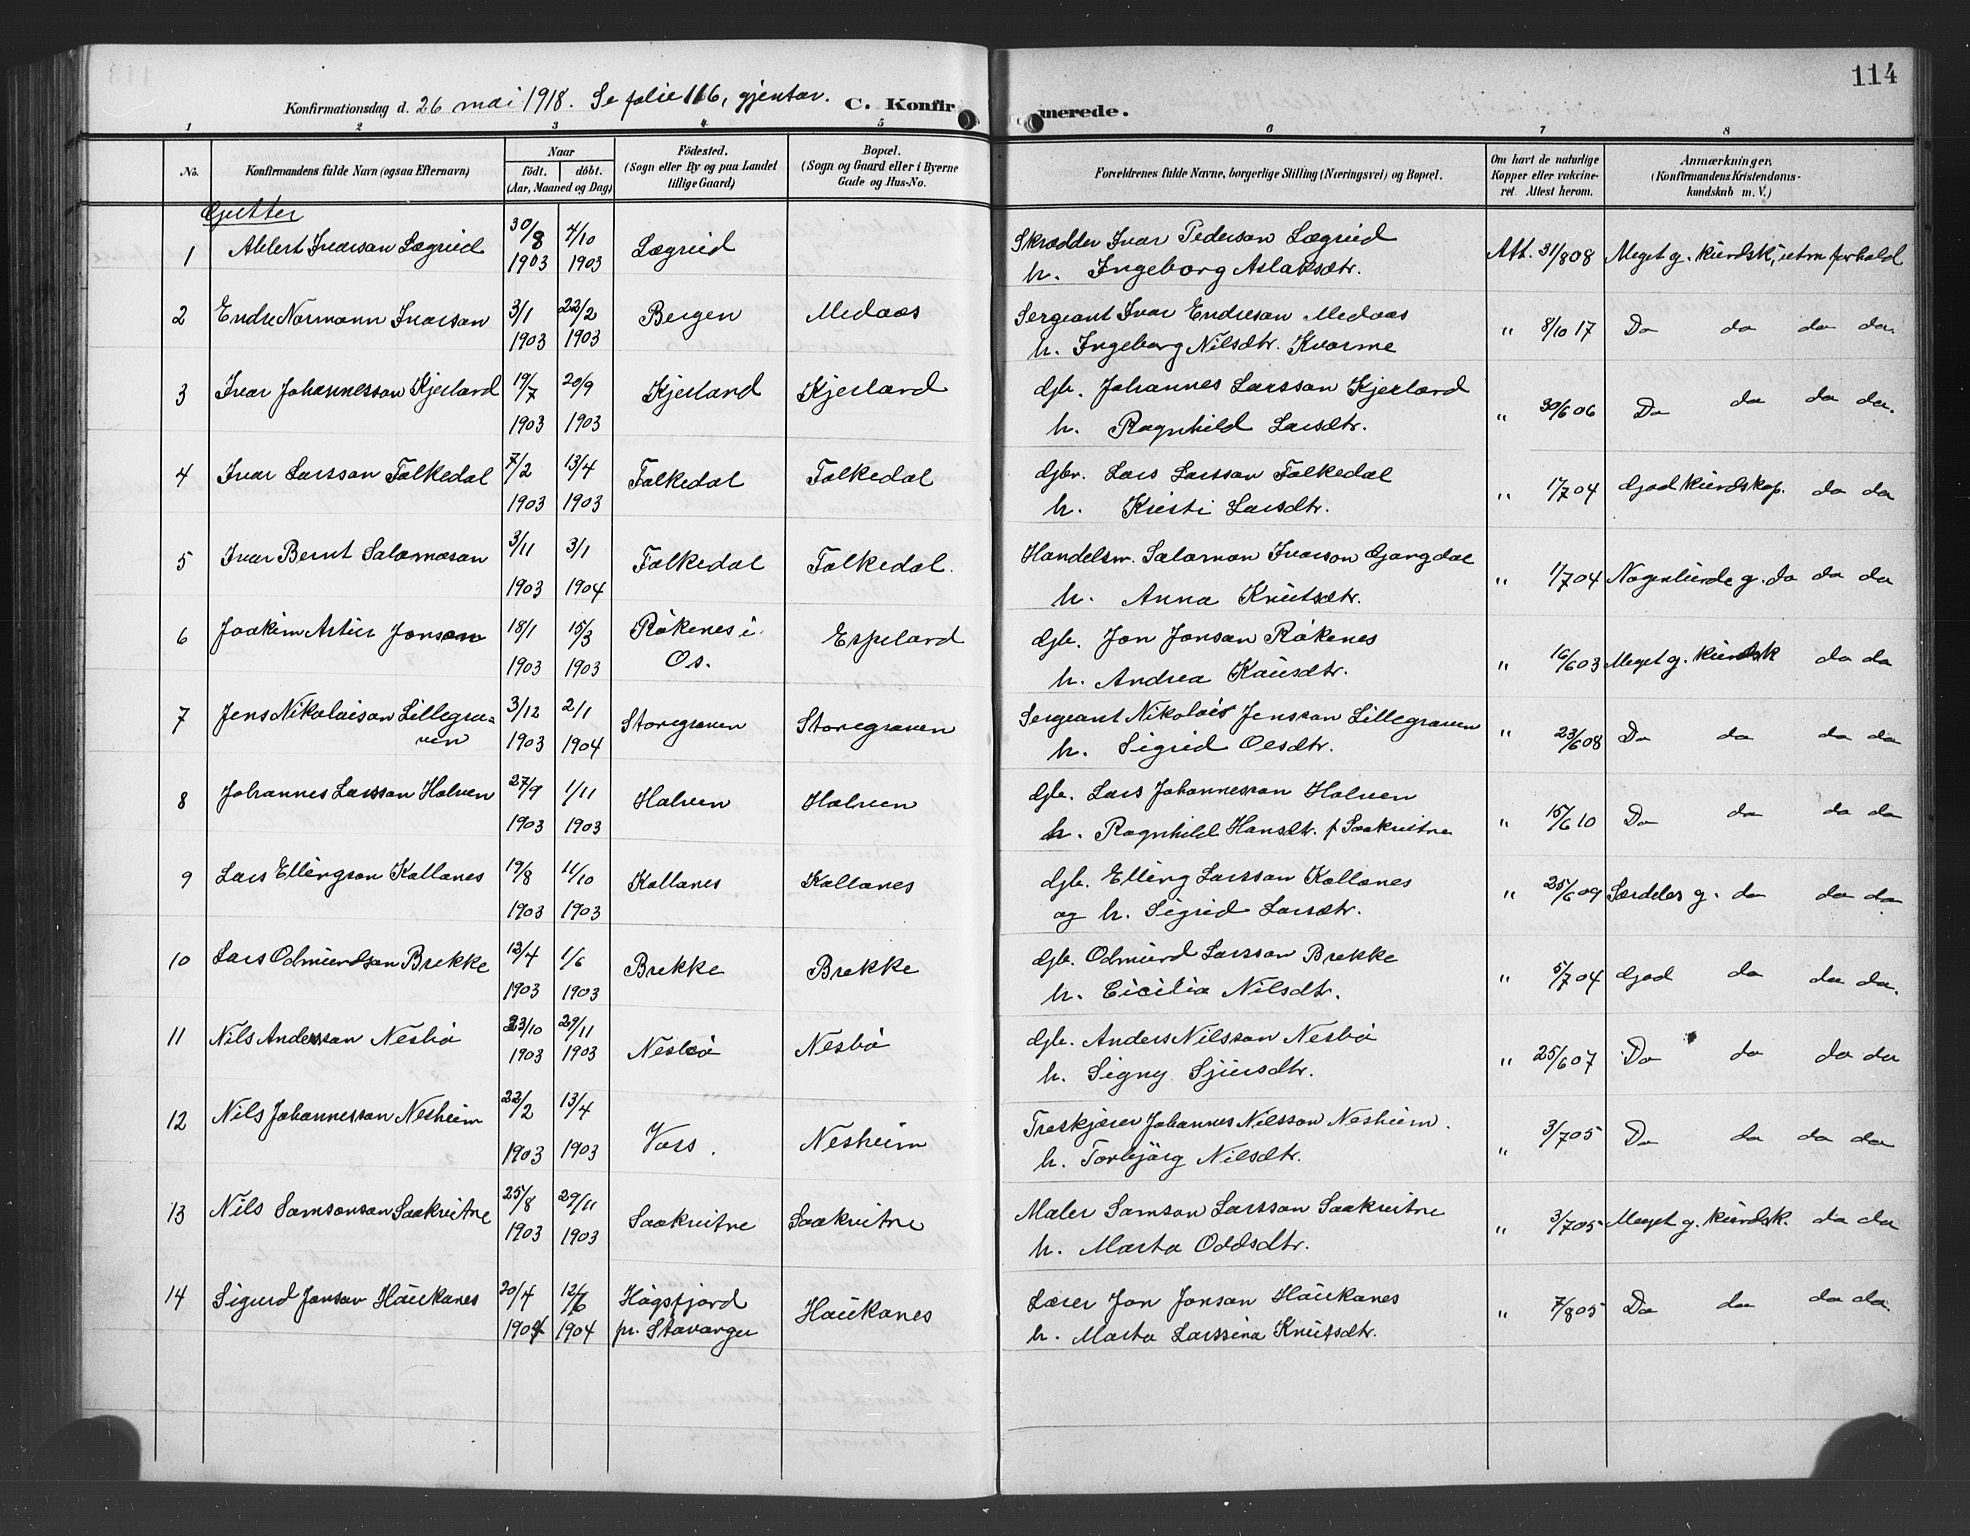 114
Konfirmationsdag d. 26 mai 1918. Se folie 116, gjentar. C. Konfirmerede.
1 2 3 4 5 6 7 8
No. Konfirmandens fulde Navn (ogsaa Efternavn) Naar födt. döbt. (Aar, Maaned og Dag) Födested. (Sogn eller By og paa Landet tillige Gaard) Bopæl. (Sogn og Gaard eller i Byerne Gade og Hus-No. Forældrenes fulde Navne, borgerlige Stilling (Næringsvei) og Bopæl. Om havt de naturlige Kopper eller vakcineret. Attest herom. Anmærkninger. (Konfirmandens Kristendomskundskab m. V.)
Gutter
1 Ablert Ivarson Lægreid 30/8 4/10 Lægreid Skrædder Ivar Pederson Lægreid Att. 31/8 08 Meget g. kundsk, utm forhold
1903 1903 h. Ingeborg Aslaksdtr.
2 Endre Normann Ivarson 3/1 22/2 Bergen Medaas Sergeant Ivar Endreson Medaas " 8/10 17 Do do do do.
1903 1903 h. Ingeborg Nilsdtr. Kvarme
3 Ivar Johannesson Kjerland 19/7 20/9 Kjerland Kjerland Gb. Johannes Larsson Kjerland " 30/6 06 Do do do do.
1903 1903 h. Ragnhild Larsdtr.
4 Ivar Larsson Folkedal 7/2 13/4 Folkedal Folkedal Gbr. Lars Larsson Folkedal " 1/7 04 God kundskap. do do
1903 1903 h. Kristi Larsdtr.
5 Ivar Bernt Salomoson 3/11 3/1 Folkedal Folkedal. Handelsm. Salomon Ivarson Gangdal " 1/7 04 Nogenlunde g. do do do
1903 1904 h. Anna Knutsdtr.
6 Joakim Artur Jonson 18/1 15/3 Røkenes i Espeland Gb. Jon Jonson Røkenes " 16/6 03 Meget g. kundsk do do
1903 1903 Os. h. Andrea Kausdtr.
7 Jens Nikolaison Lillegra- 3/12 2/1 Storegraven Storegraven Sergeant Nikolais Jensson Lillegraven " 23/6 08 Do do do do
ven 1903 1904 h. Sigrid Olsdtr.
8 Johannes Larsson Holven 27/9 1/11 Holven Holven Gb. Lars Johannesson Holven " 15/6 10 Do do do do
1903 1903 h. Ragnhild Hansdtr. f Saakvitne
9 Lars Ellingson Kollanes 19/8 11/10 Kollanes Kollanes Gb. Elling Larsson Kollanes " 25/6 09 Særdeles g. do do do
1903 1903 og h. Sigrid Larsdtr.
10 Lars Odmundson Brekke 13/4 1/6 Brekke Brekke Gb. Odmund Larsson Brekke " 5/7 04 God do do do.
1903 1903 h. Cicilia Nilsdtr.
11 Nils Andersson Nesbø 23/10 29/11 Nesbø Nesbø Gb. Anders Nilsson Nesbø " 25/6 07 Do do do do
1903 1903 h. Signy Sjursdtr.
12 Nils Johannesson Nesheim 22/2 13/4 Voss. Nesheim Treskjærer Johannes Nilsson Nesheim. " 3/7 05 Do do do do
1903 1903 h. Torbjørg Nilsdtr.
13 Nils Samsonson Saakvitne 25/8 29/11 Saakvitne Saakvitne Maler Samson Larsson Saakvitne " 3/7 05 Meget g. kundsk. do do
1903 1903 h. Marta Oddsdtr.
14 Sigurd Jonson Haukanes 20/4 12/6 Høgsfjord Haukanes Lærer Jon Jonson Haukanes " 7/8 05 Do do do do.
1904 1904 pr. Stavanger h. Marta Larssina Knutsdtr.